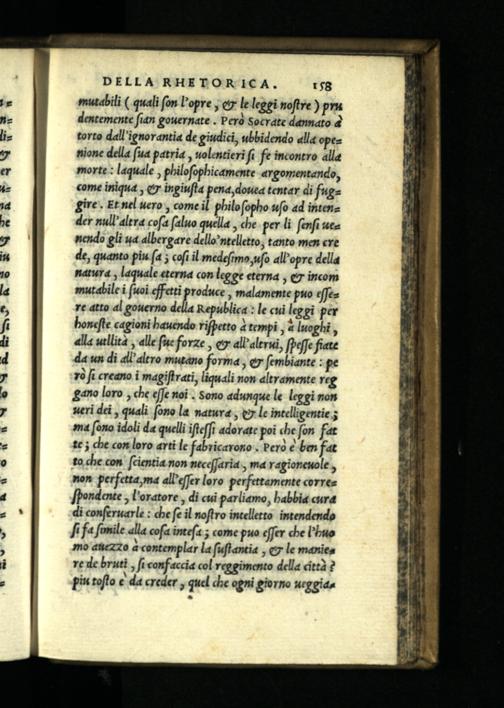 DELLA RHETORICA. 158
mutabili (quali son l'opre, & le leggi nostre) pru
dentemente sian gouernate. Però Socrate dannato à
torto dall'ignorantia de giudici, ubbidendo alla ope=
nione della sua patria, uolentieri si fe incontro alla
morte: laquale, philosophicamente argomentando,
come iniqua, & ingiusta pena, douea tentar di fug=
gire. Et nel uero, come il philosopho uso ad inten=
der null'altra cosa saluo quella, che per li sensi ue=
nendo gli ua albergare dello'ntelletto, tanto men cre
de, quanto piu sa; cosi il medesimo, uso all'opre della
natura, laquale eterna con legge eterna, & incom
mutabile i suoi effetti produce, malamente puo esse=
re atto al gouerno della Republica: le cui leggi per
honeste cagioni hauendo rispetto à tempi, à luoghi,
alla utilità, alle sue forze, & all'altrui, spesse fiate
da un dì all'altro mutano forma, & sembiante: pe
rò si creano i magistrati, liquali non altramente reg
gano loro, che esse noi. Sono adunque le leggi non
ueri dei, quali sono la natura, & le intelligentie;
ma sono idoli da quelli istessi adorate poi che son fat
te; che con loro arti le fabricarono. Però è ben fat
to che con scientia non necessaria, ma ragioneuole,
non perfetta, ma all'esser loro perfettamente corre=
spondente, l'oratore, di cui parliamo, habbia cura
di conseruarle: che se il nostro intelletto intendendo
si fa simile alla cosa intesa; come puo esser che l'huo
mo auezzo à contemplar la sustantia, & le manie=
re de bruti, si confaccia col reggimento della città?
piu tosto e da creder, quel che ogni giorno ueggia=